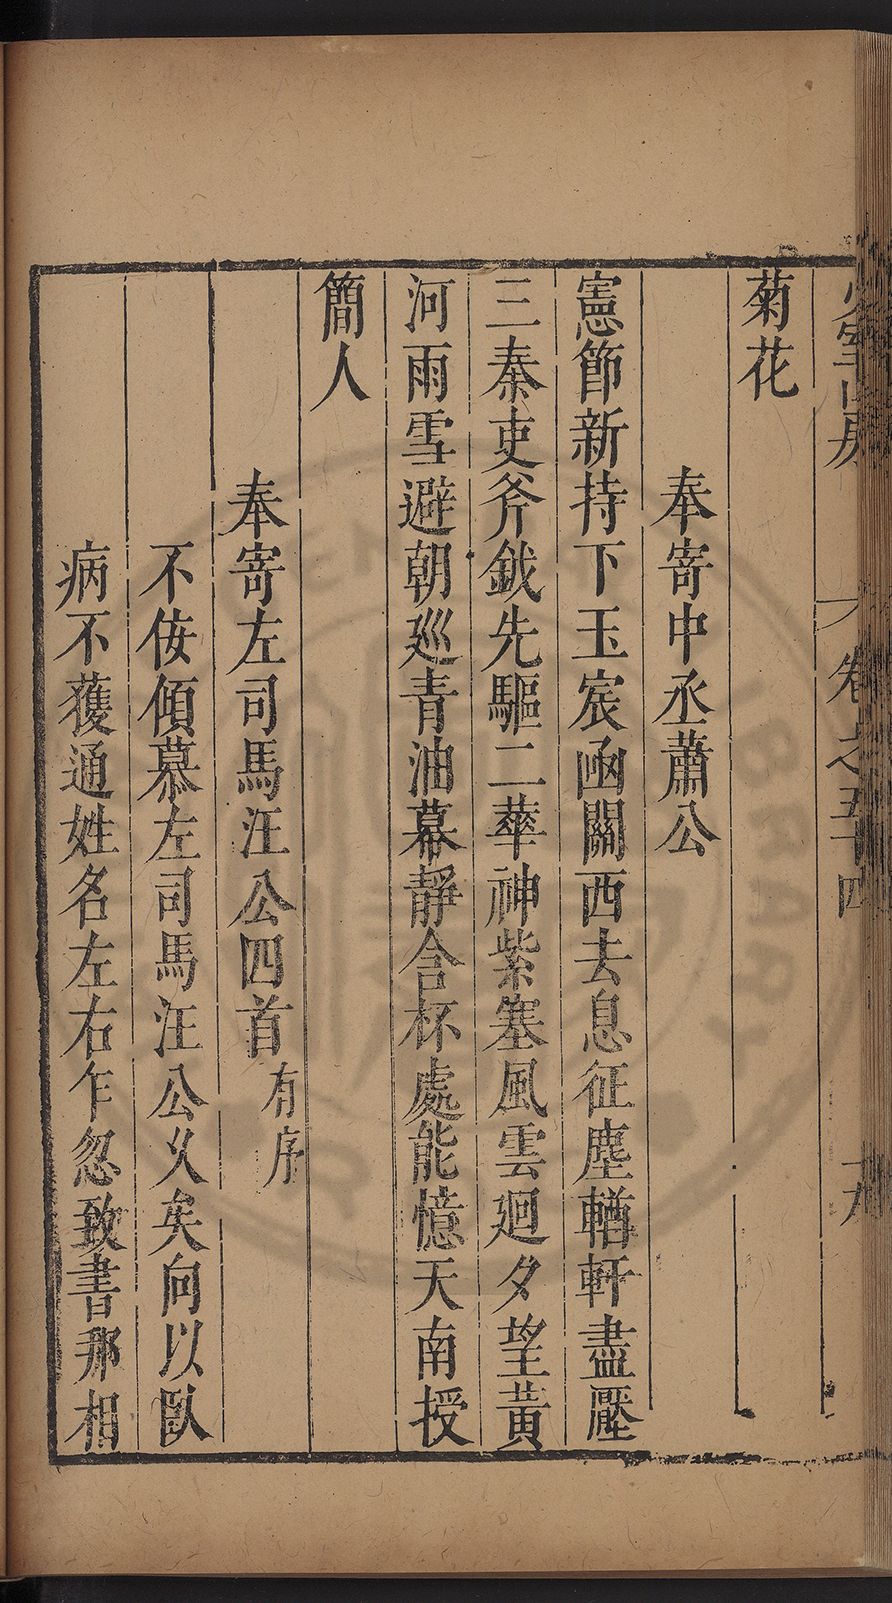 少室山房
卷之五十四
十九
菊花
奉寄中丞蕭公
憲節新持下玉宸函關西去息征塵輶軒盡壓
三秦吏斧鉞先驅二華神紫塞風雲迴夕望黃
河雨雪避朝巡青油幕靜含杯處能憶天南授
簡人
奉寄左司馬汪公四首有序
不佞傾慕左司馬汪公乆矣向以臥
病不獲通姓名左右乍忽致書那相